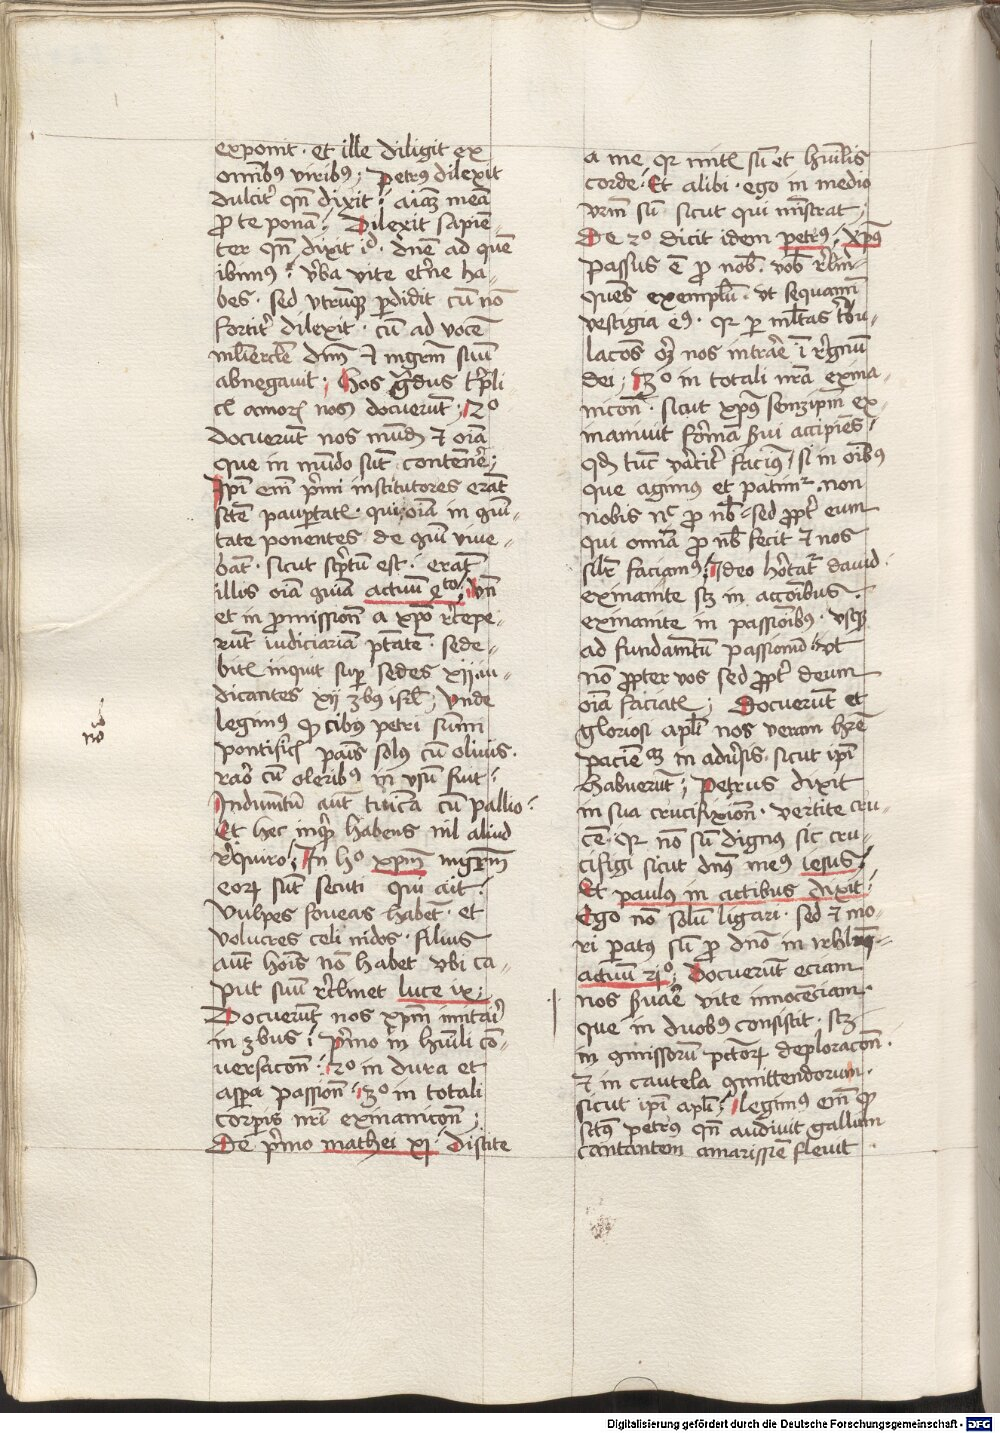 exponit · et ille diligit ex
omībus viribus; Petrus dilexit
dulcit᷒ qn̄ dixit; aīaʒ meā
pro te ponā; Dilexit sapiē-
ter qn̄ dixit · dn̄e ad quē
ibimus; v̓ba vite et̓ne ha-
bes · sed vtrumqʒ perdidit cū nō
fortit᷒ dilexit · cū ad vocē
mulierc̄le dn̄m et mgrm̄ suū
abnegauit; hos g̃dus
docuerūt; 2º
docuerūt nos mūdū et oīa
que in mūdo sūt contēnere;
Ipi em̄ p̓mi institutores erāt
sctē paup̱tat᷒ · qui oīa in cōmu-
tate ponentes de cōmuni viue-
bāt · sicut sc̓ptū est · erāt
illis oīa cōmunia actuū 4to; Un̄
et in p̱missionē a xp̄o recepe-
rūt iudiciariā ptātē · sede-
bit᷒ inquit sup̱ sedes xij iu-
dicantes xij tribus isrl̄; Vnde
legimus qd̄ cibus petri sūmi
pontificis panis solus cū oliuis ·
raro cū oleribus in vsū fuit;
Indumentū aūt tunica cū pallio;
Et hec inqt̄ habens nil aliud
requiro; In hº xpm̄ mgrm̄
eorū sūt secuti qui ait;
Vulpes foueas habēt · et
volucres celi nidos · filius
aūt hoīs nō habet vbi ca-
put suū reclinet luce ix;
Docuerūt nos xpm̄ imitari
in 3bus; p̓mo in humili cō-
uersacōn; 2º in dura et
aspa passiōn; 3º in totali
corp̱is nr̄i exinanicōn;
De p̓mo mathei xj · Discite
nō
a me qr mitis sū et humilis
corde · Et alibi · ego in medio
vr̄m sū sicut qui mīstrat;
De 2º dicit idem petrus; xpūs
passus ē pro nob̄ · vob̄ relin-
quēs exemplū · vt sequamī
vestigia eius · qr per multas tribu-
lacōēs oʒ nos intrare ī regnū
dei; 3º in totali nr̄a exina-
nicōn · sicut xpūs semʒipm̄ ex-
inaniuit formā s̓ui accipiēs;
qd̄ tūc
faciemus, si in oībus
que agimus et patimur · non
nobis nec pro nob̄ · sed propt᷒ eum
qui omnia pro nob̄ fecit et nos
sibi faciamus; Ideo hortatur dauid ·
exinanite scʒ in accōibus ·
exinanite in passiōibus · vsqʒ
ad fundamētū passionū · vt
nō propter vos sed propt᷒ deum
oīa faciatis; Docuerūt et
gloriosi apl̄i nos veram hr̄e
pacienciaʒ in adu̓sis · sicut ipi
habuerūt; Petrus dixit
in sua crucifixiōn · vertite cru-
cē · qr nō sū dignus sic cru-
cifigi sicut dn̄s meus iesus;
Et paulus in actibus dixit;
Ego nō solū ligari · sed et mo-
ri paratus sū pro dn̄o in irhlm̄
actuū xxjº; Docuerūt eciam
nos s̓uare vite innocēciam ·
que in duobus consistit · scʒ
in cōmissorū pctōrū deploracōn ·
et in cautela cōmittendorum ·
sicut ipi apl̄i; legimus em̄ qd̄
sctūs petrus qn̄ audiuit gallum
cantantem amarissie fleuit ·
Digitalisierung gefördert durch die Deutsche Forschungsgemeinschaft - DFG